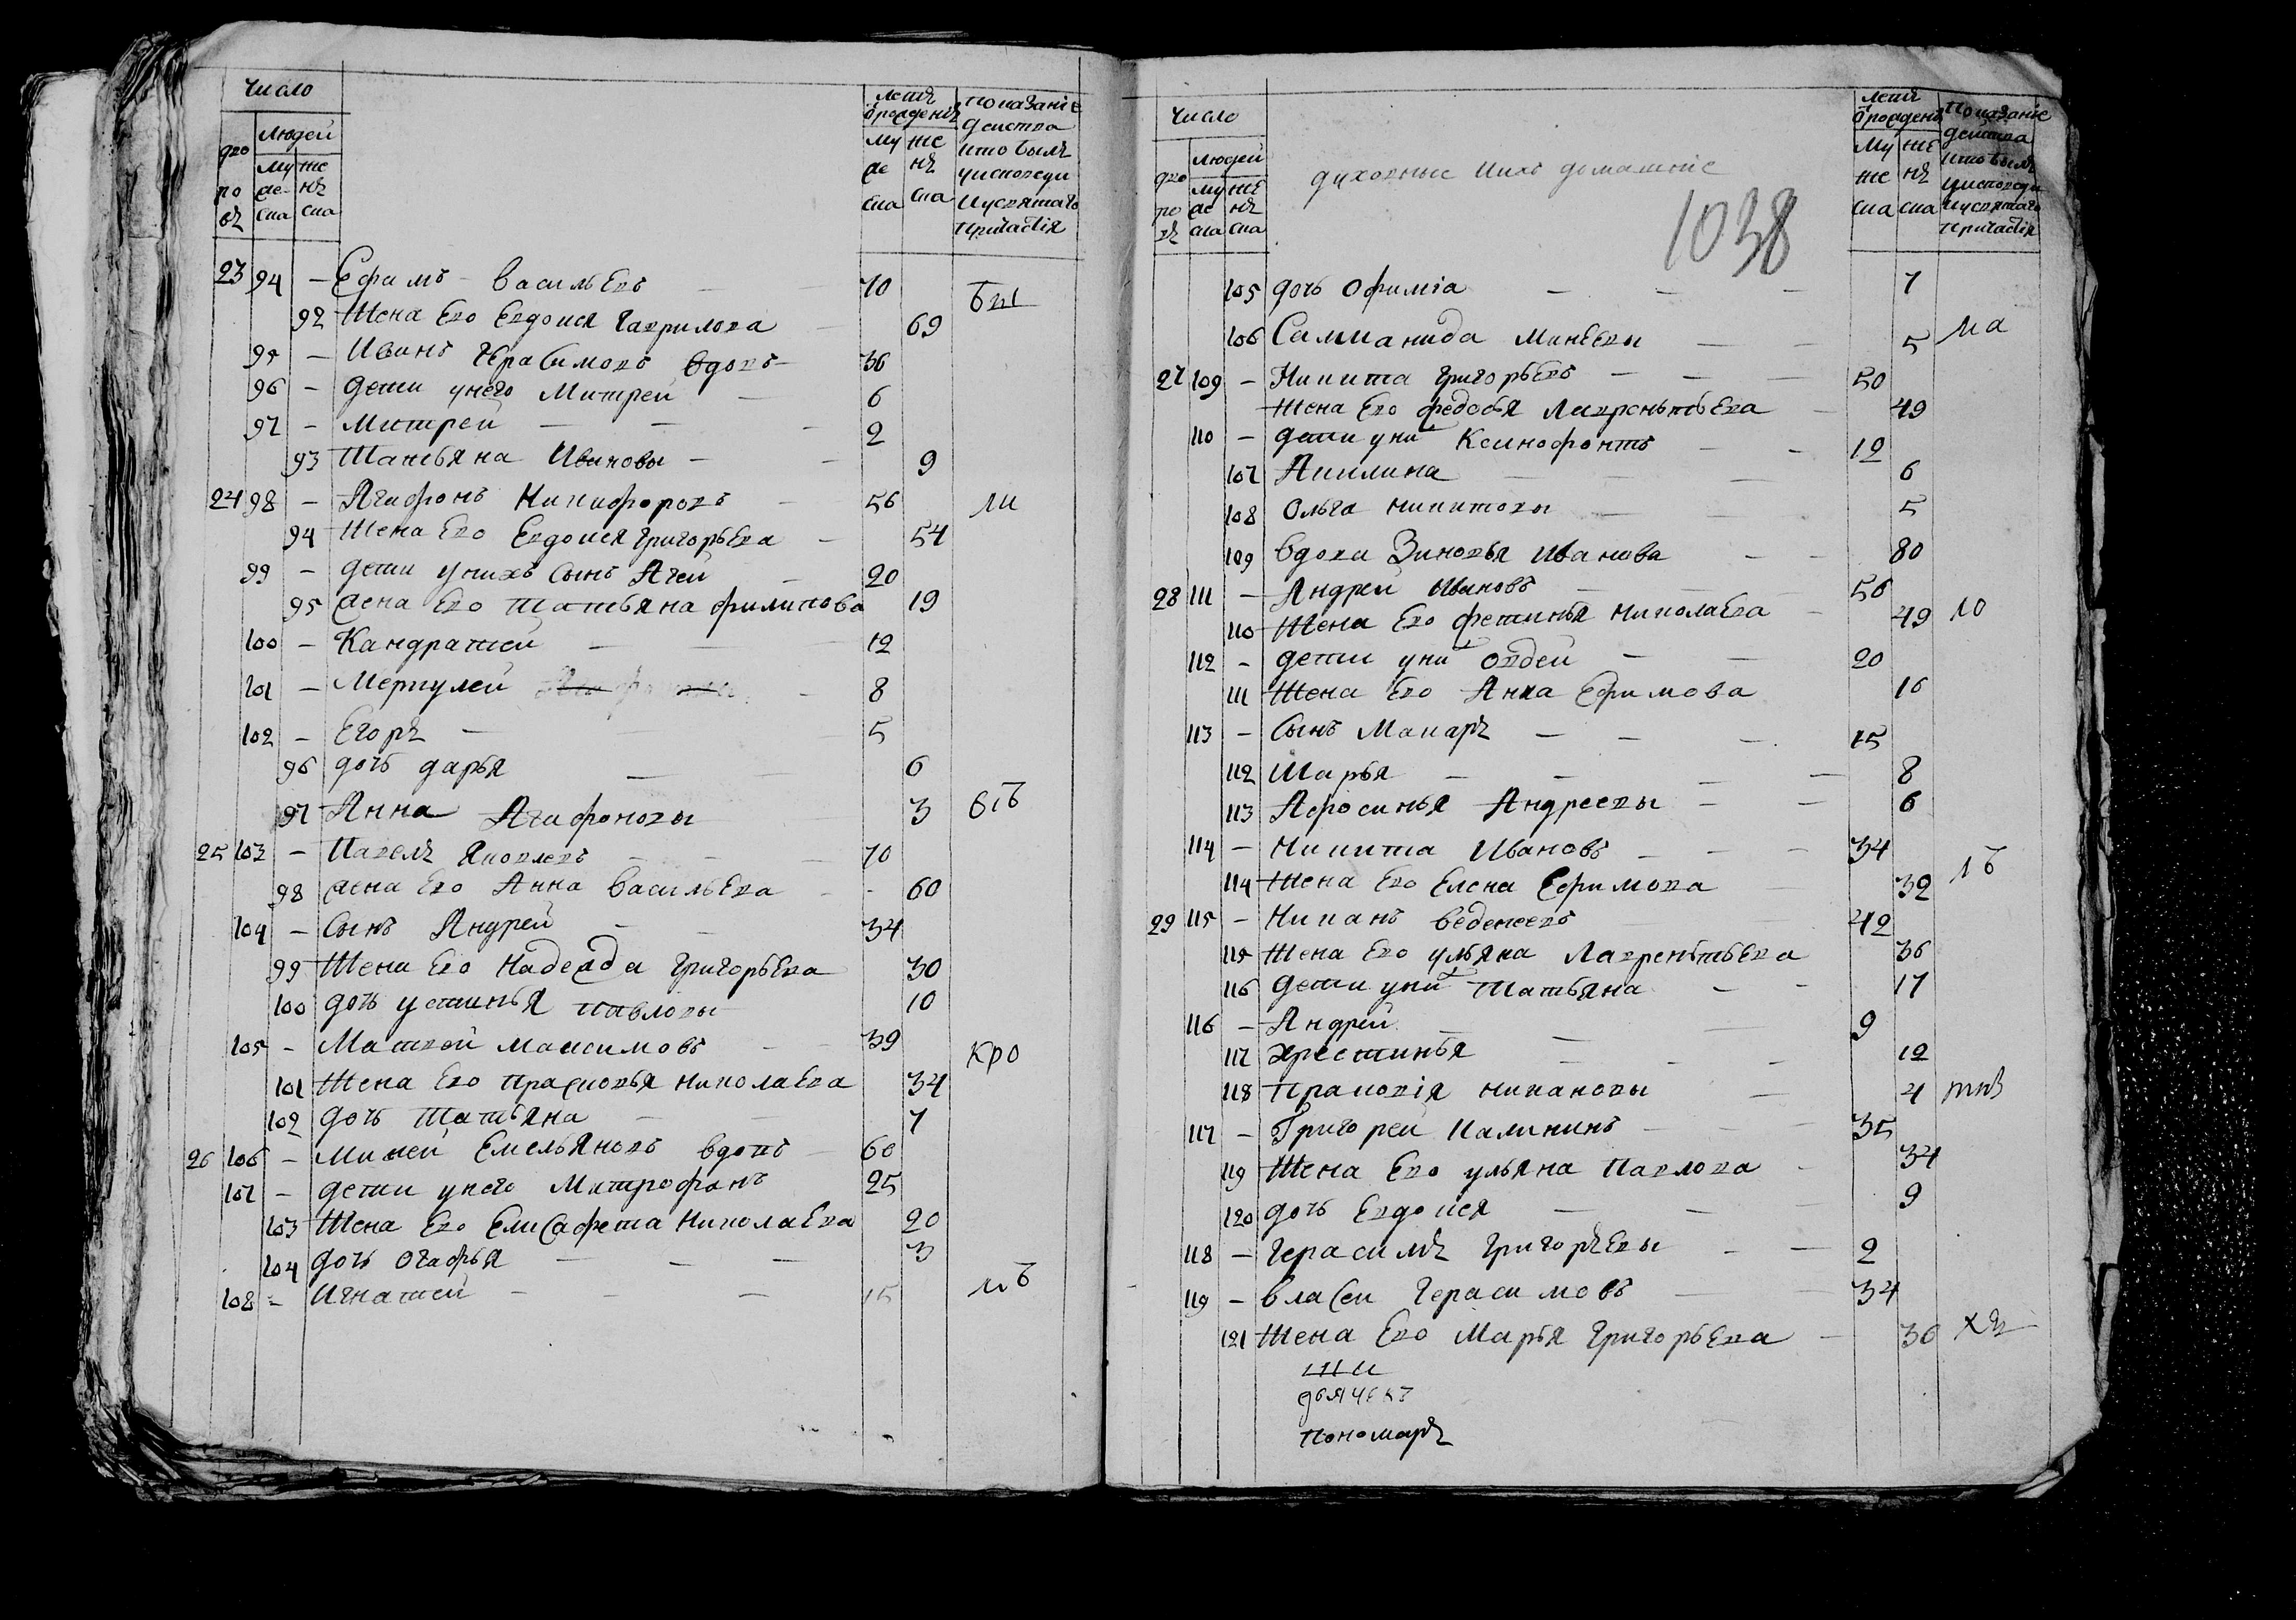 Число
Людей
дво
ро
въ
муже
ска
жен
ска
летъ
ѿ рожденiя
муже
ска
жен
ска
показанiе
действа
кто былъ
у исповеди
и у святаго
причастiя
23 94 – Ефимъ Васильевъ – 70 бы
92 Жена Ево Евдокея Гаврилова – 69
95 – Иванъ Герасимовъ вдовъ – 36
96 – дети у него Митрей – 6
97 – Митрей – – – 2
93 Татьяна Ивановы – – 9
24 98 – Агафонъ Никифоровъ – 56 ли
94 Жена Ево Евдокея Григорьева – 54
99 – дети у нихъ Сынъ Агей – 20
95 жена Ево Татьяна филипова 19
100 – Кандратей – – 12
101 – Меркулей – 8
102 – Егоръ – – 5
96 дочь дарья – – 6
97 Анна Агафоновы 3 въ
25 103 – Павелъ Яковлевъ – – – 70
98 жена Ево Анна Васильева – – 60
104 – Сынъ Андрей – – 34
99 Жена Ево Надежда Григорьева 30
100 дочь устинья Павловы 10
105 – Матвей Максимовъ – – 39
101 Жена Ево Прасковья Николаева 34 кро
102 дочь Татьяна – – 7
26 106 – Миней Емельяновъ вдовъ – 60
107 – дети у него Митрофанъ 25
103 Жена Ево Елисафета Николаева 20
104 дочь Огафья – – – 3
108 – Игнатей – – – 15 мъ
Число
Людей
дво
ро
въ
муже
ска
жен
ска
духовные и ихъ домашнiе
1038
летъ
ѿ рожденiя
муже
ска
жен
ска
показанiе
действа
кто былъ
у исповеди
и у святаго
причастiя
105 дочь Офимiа – – – 7
106 Саламанида Минеевы – – 5 ма
27 109 – Никита Григорьевъ – – – 50
Жена Ево федосья Лаврентьева – 49
110 – дети у них Ксинофонтъ – – 12
107 Акилина – – – 6
108 Ольга Никитовы – – 5
109 вдова Зиновья Иванова – – 80
28 111 – Андрей Ивановъ – – 56
110 Жена Ево фетинья Николаева – 49 ло
112 – дети у них Овдей – – 20
111 Жена Ево Анна Ефимова 16
113 – Сынъ Макаръ – – – 15
112 Марья – – – – 8
113 Афросинья Андреевы – – 6
114 – Никита Ивановъ – – – 34
114 Жена Ево Елена Ефимова – 32 лъ
29 115 – Никанъ веденеевъ 42
115 Жена Ево ульяна Лаврентьева 36
116 дети у них Татьяна – – 17
116 – Андрей – – – 9
117 Христинья – – – 12
118 Прасковiя никановы – 4
117 – Григорей Калининъ – – 35
119 Жена Ево ульяна Павлова – 34
120 дочь Евдокея – – – 9
118 – Герасимъ Григорьевы – – 2
119 – власей Герасимовъ – – 34
121 Жена Ево Марья Григорьева – 36
дьячекъ
Пономарь